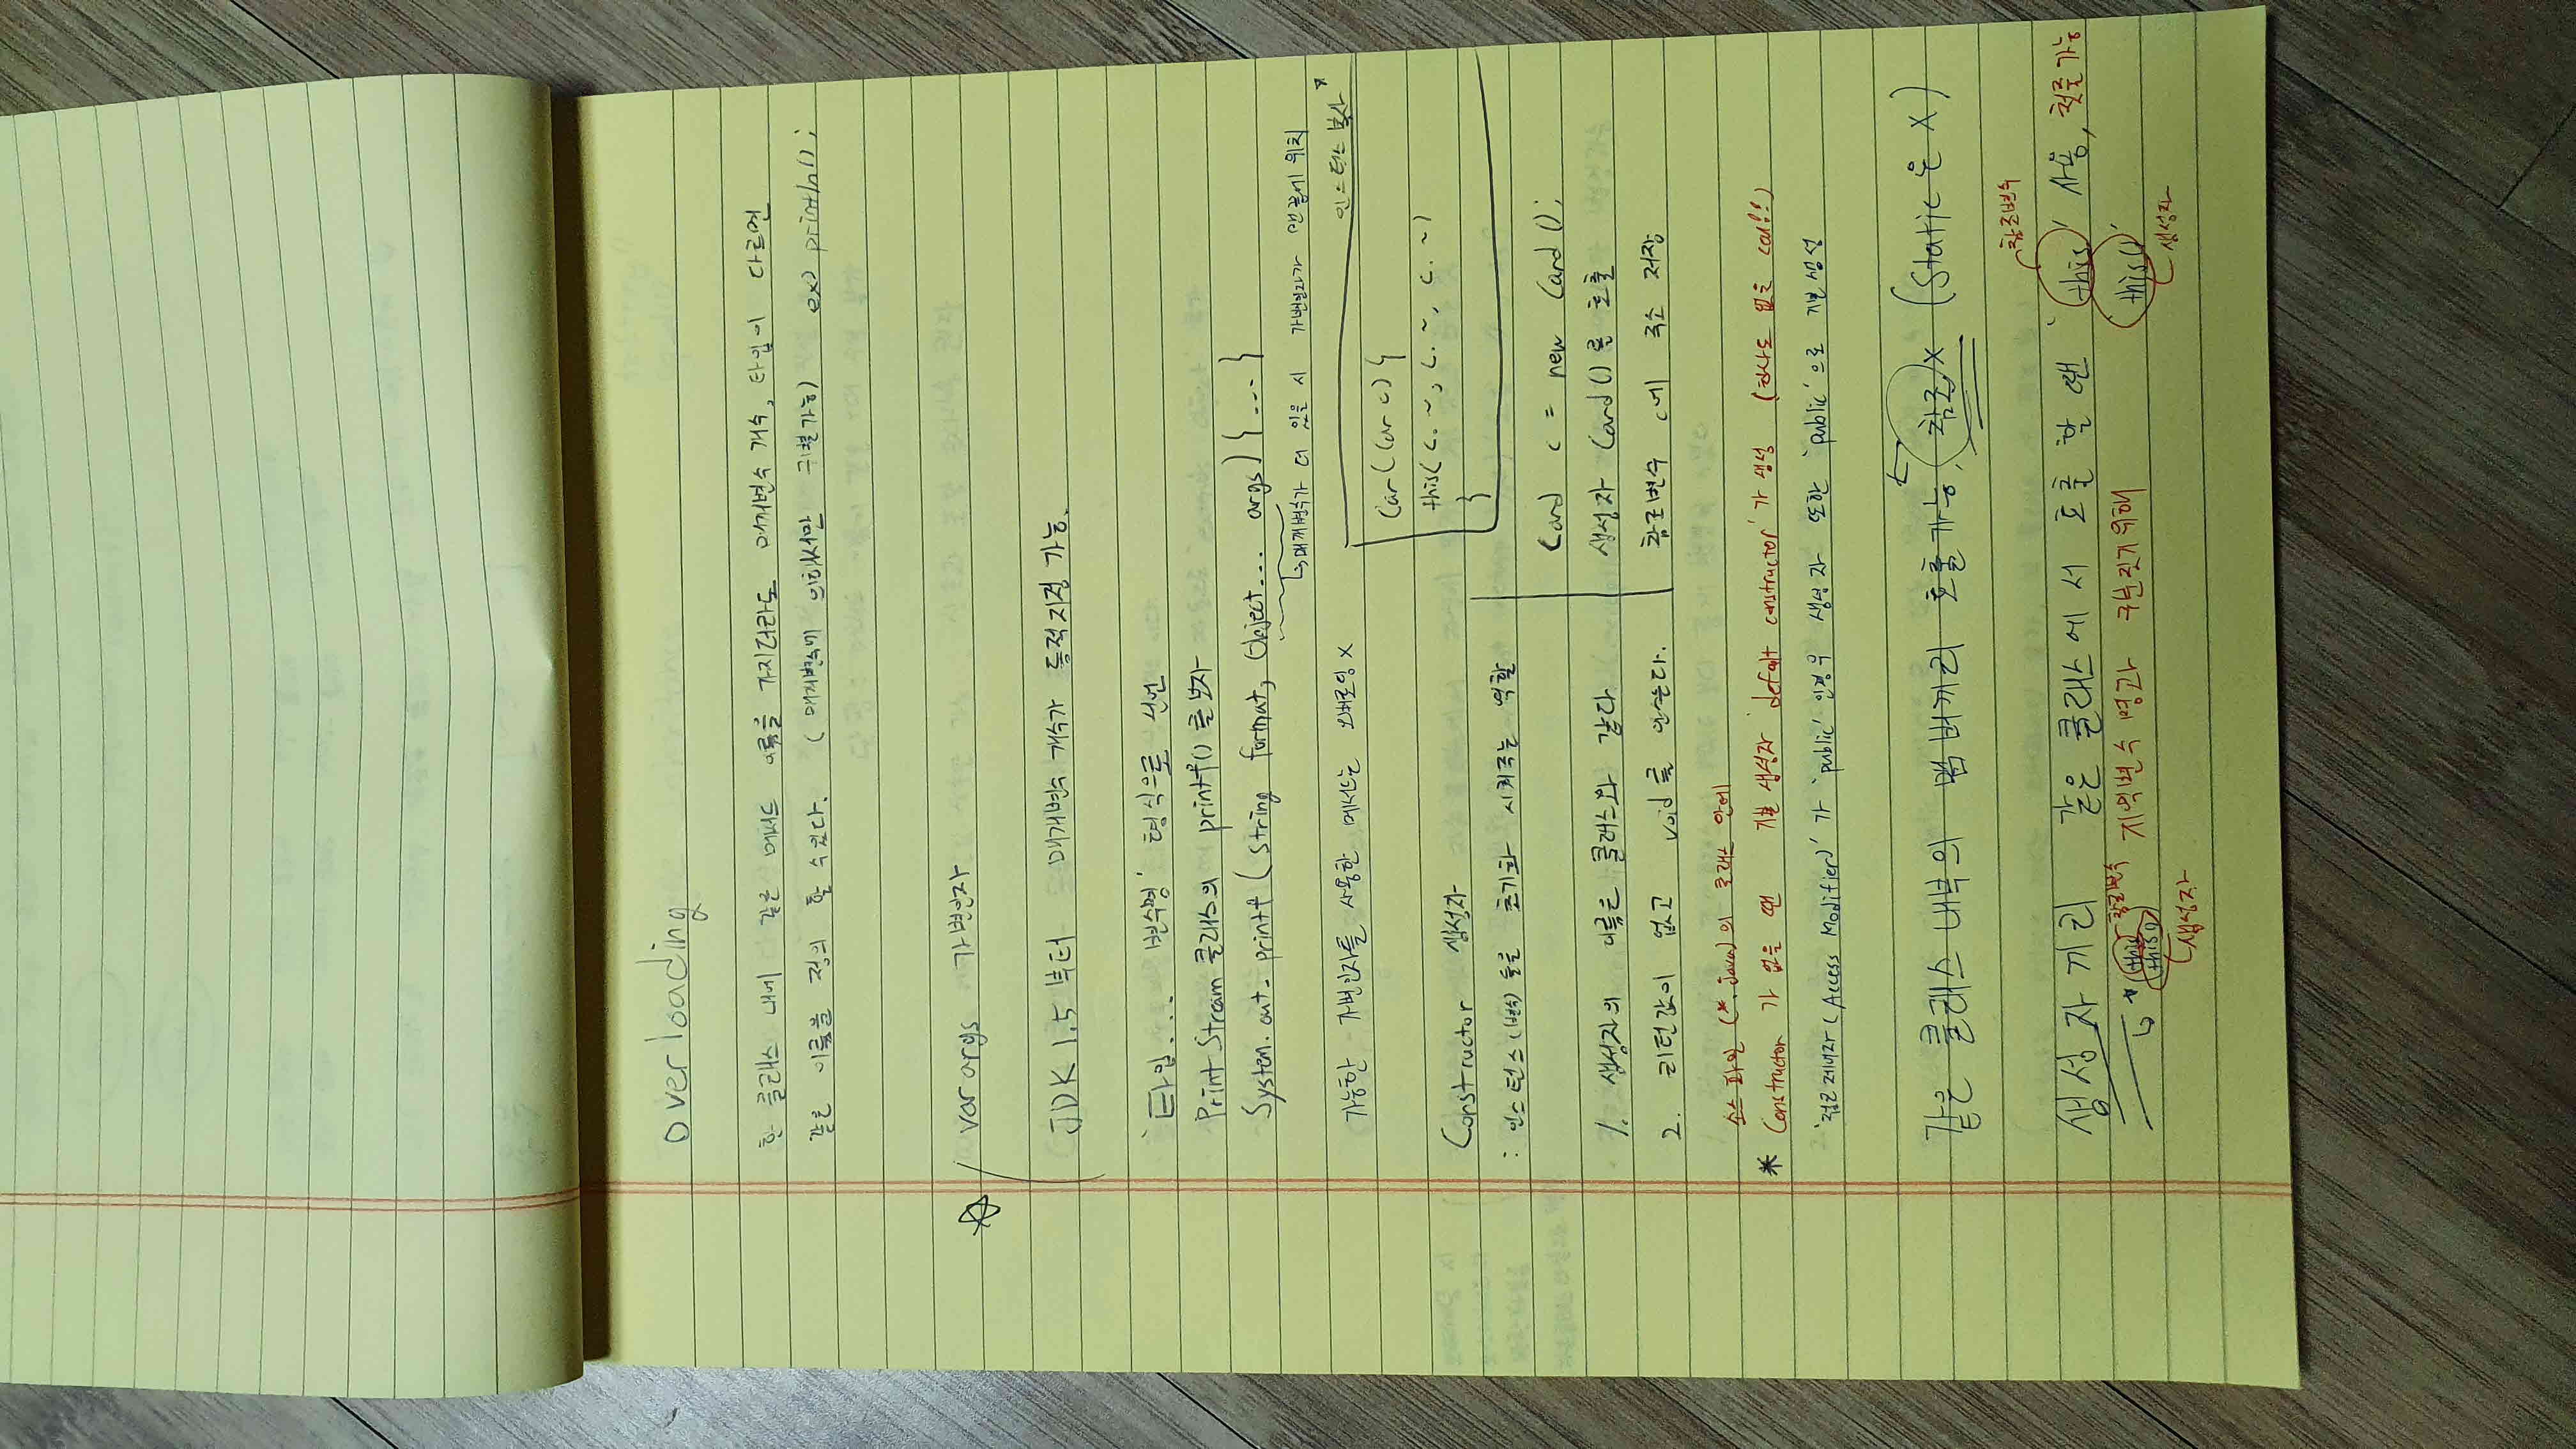 overloading
한 클래스 내에 같은 메서드 이름을 가지더라도 매개변수 개수, 타입이 다르면
같은 이름을 정의 할 수 있다. (매개변수에 의해서만 구별가능) ex) println();
var args 가변인자
JDK 1.5 부터 매개변수 개수가 동적지정 가능.
'타입... 변수명' 형식으로 선언
Print Stream 클래스의 printf()를 보자
System.out.printf (String format, Object... args) { ... }
↳매개변수가 더 있을 시 가변인자가 맨 끝에 위치
가능한 가변인자를 사용한 메서드는 오버로딩 x
인스턴스 복사*
Car(Car c) {
this(c.~, c.~, c.~)
}
Constructor 생성자
: 인스턴스(변수)들을 초기화 시켜주는 역할
1. 생성자의 이름은 클래스와 같다
2. 리턴값이 없고 void를 안쓴다.
Card c = new Card();
생성자 Card()를 호출
참조변수 c에 주소 저장
소스파일 (*.java)의 클래스 안에
* Constructor 가 없을 땐 기본 생성자 'default constructor'가 생성 (하나도 없을 때!!)
'접근제어자(Access Modifier)'가 'public'인경우 생성자 또한 'public'으로 기본생성
같은 클래스 내부의 멤버끼리 호출가능, 참조 x (Static은 X)
참조변수
생성자끼리 같은 클래스에서 호출 할 땐 'this' 사용, 첫줄가능
↳ * this 참조변수 지역변수 명과 구분짓기위해 'this()'
this()
생성자
생성자